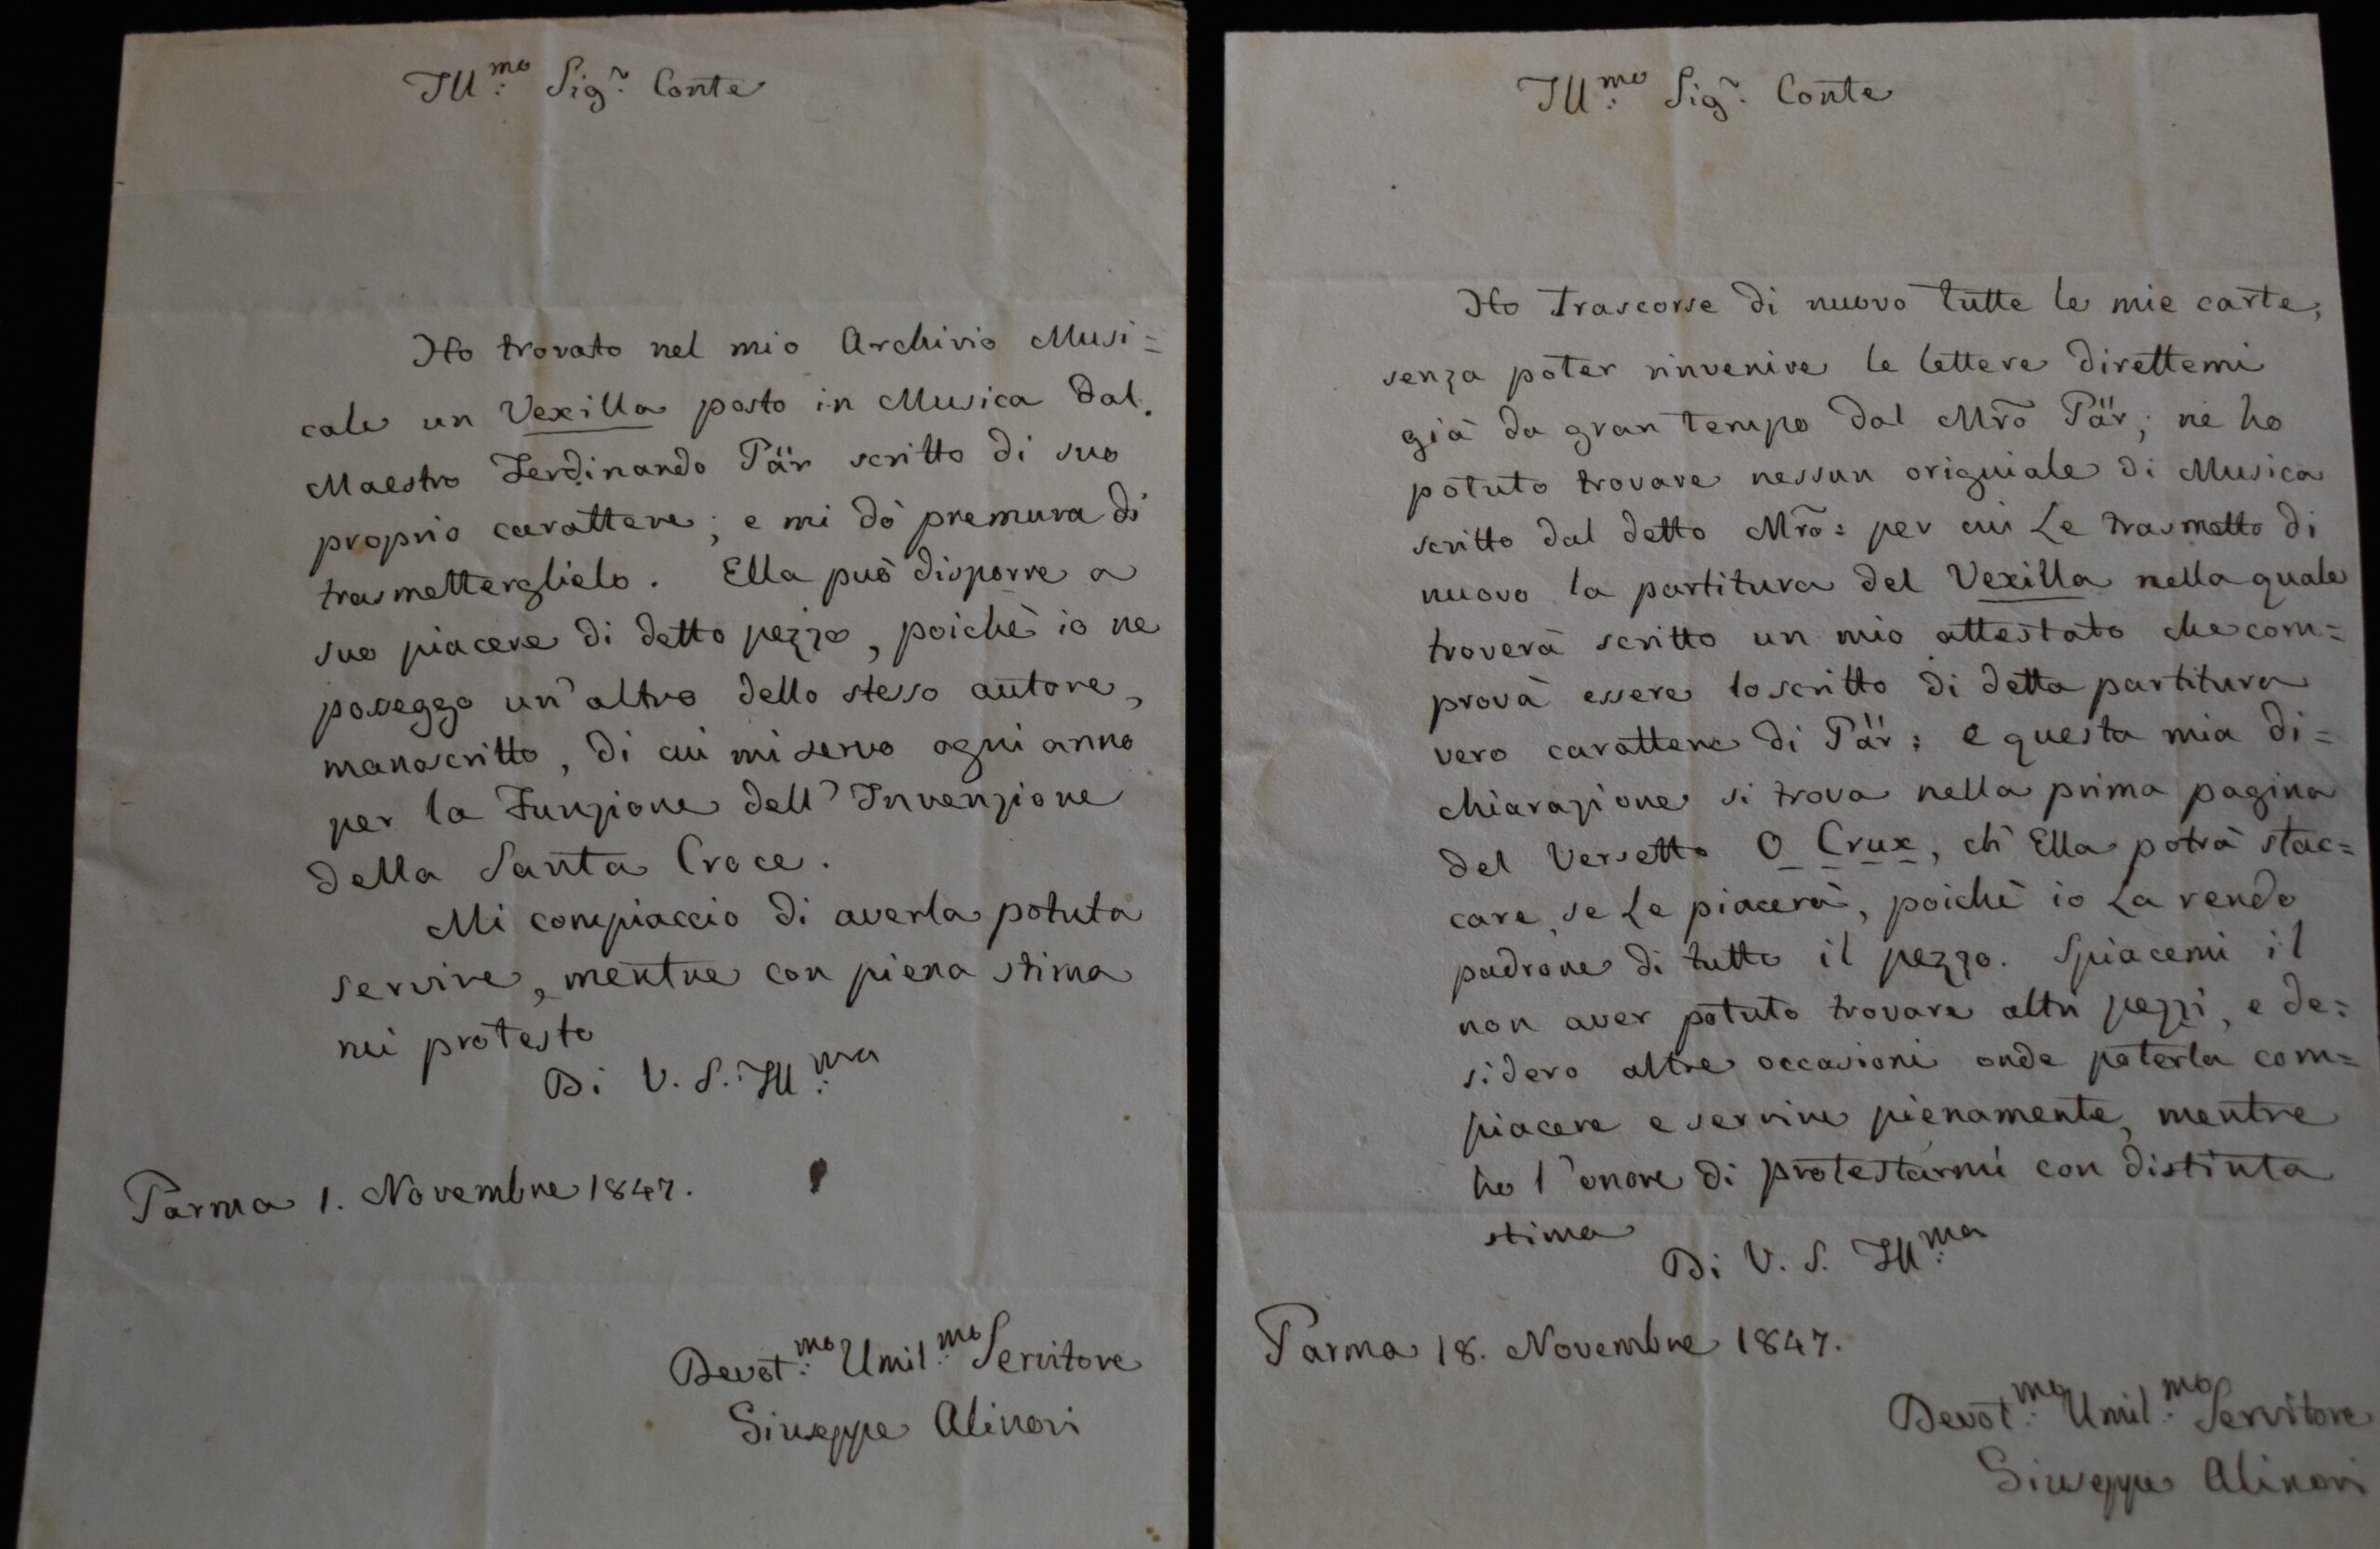 Ill.mo Sig.r Conte
Ho trovato nel mio Archivio Musi=
cale un Vexilla posto in Musica dal
Maestro Ferdinando Pär scritto di suo
proprio carattere; e mi dò premura di
trasmetterglielo. Ella può disporre a
suo piacere di detto pezzo, poichè io ne
posseggo un'altro dello stesso autore,
manoscritto, di cui mi servo ogni anno
per la Funzione dell'Invenzione
della Santa Croce.
Mi compiaccio di averla potuta
servire, mentre con piena stima
mi protesto
Di V. S. Ill.ma
Parma 1. Novembre 1847.
Devot.mo Umil.mo Servitore
Giuseppe Alinovi
Ill.mo Sig.r Conte
Ho trascorse di nuovo tutte le mie carte,
senza poter rinvenire le lettere direttemi
già da gran tempo dal Mr̃o Pär; nè ho
potuto trovare nessun originale di Musica
scritto dal detto Mr̃o: per cui Le trasmetto di
nuovo la partitura del Vexilla nella quale
troverà scritto un mio attestato che com=
prova essere lo scritto di detta partitura
vero carattere di Pär: e questa mia di=
chiarazione si trova nella prima pagina
del Versetto O Crux, ch'Ella potrà stac=
care, se Le piacerà, poichè io La rendo
padrone di tutto il pezzo. Spiacemi il
non aver potuto trovare altri pezzi, e de=
sidero altre occasioni onde poterla com=
piacere e servire pienamente, mentre
ho l'onore di protestarmi con distinta
stima
Di V. S. Ill.ma
Parma 18. Novembre 1847.
Devot.mo Umil.mo Servitore
Giuseppe Alinovi